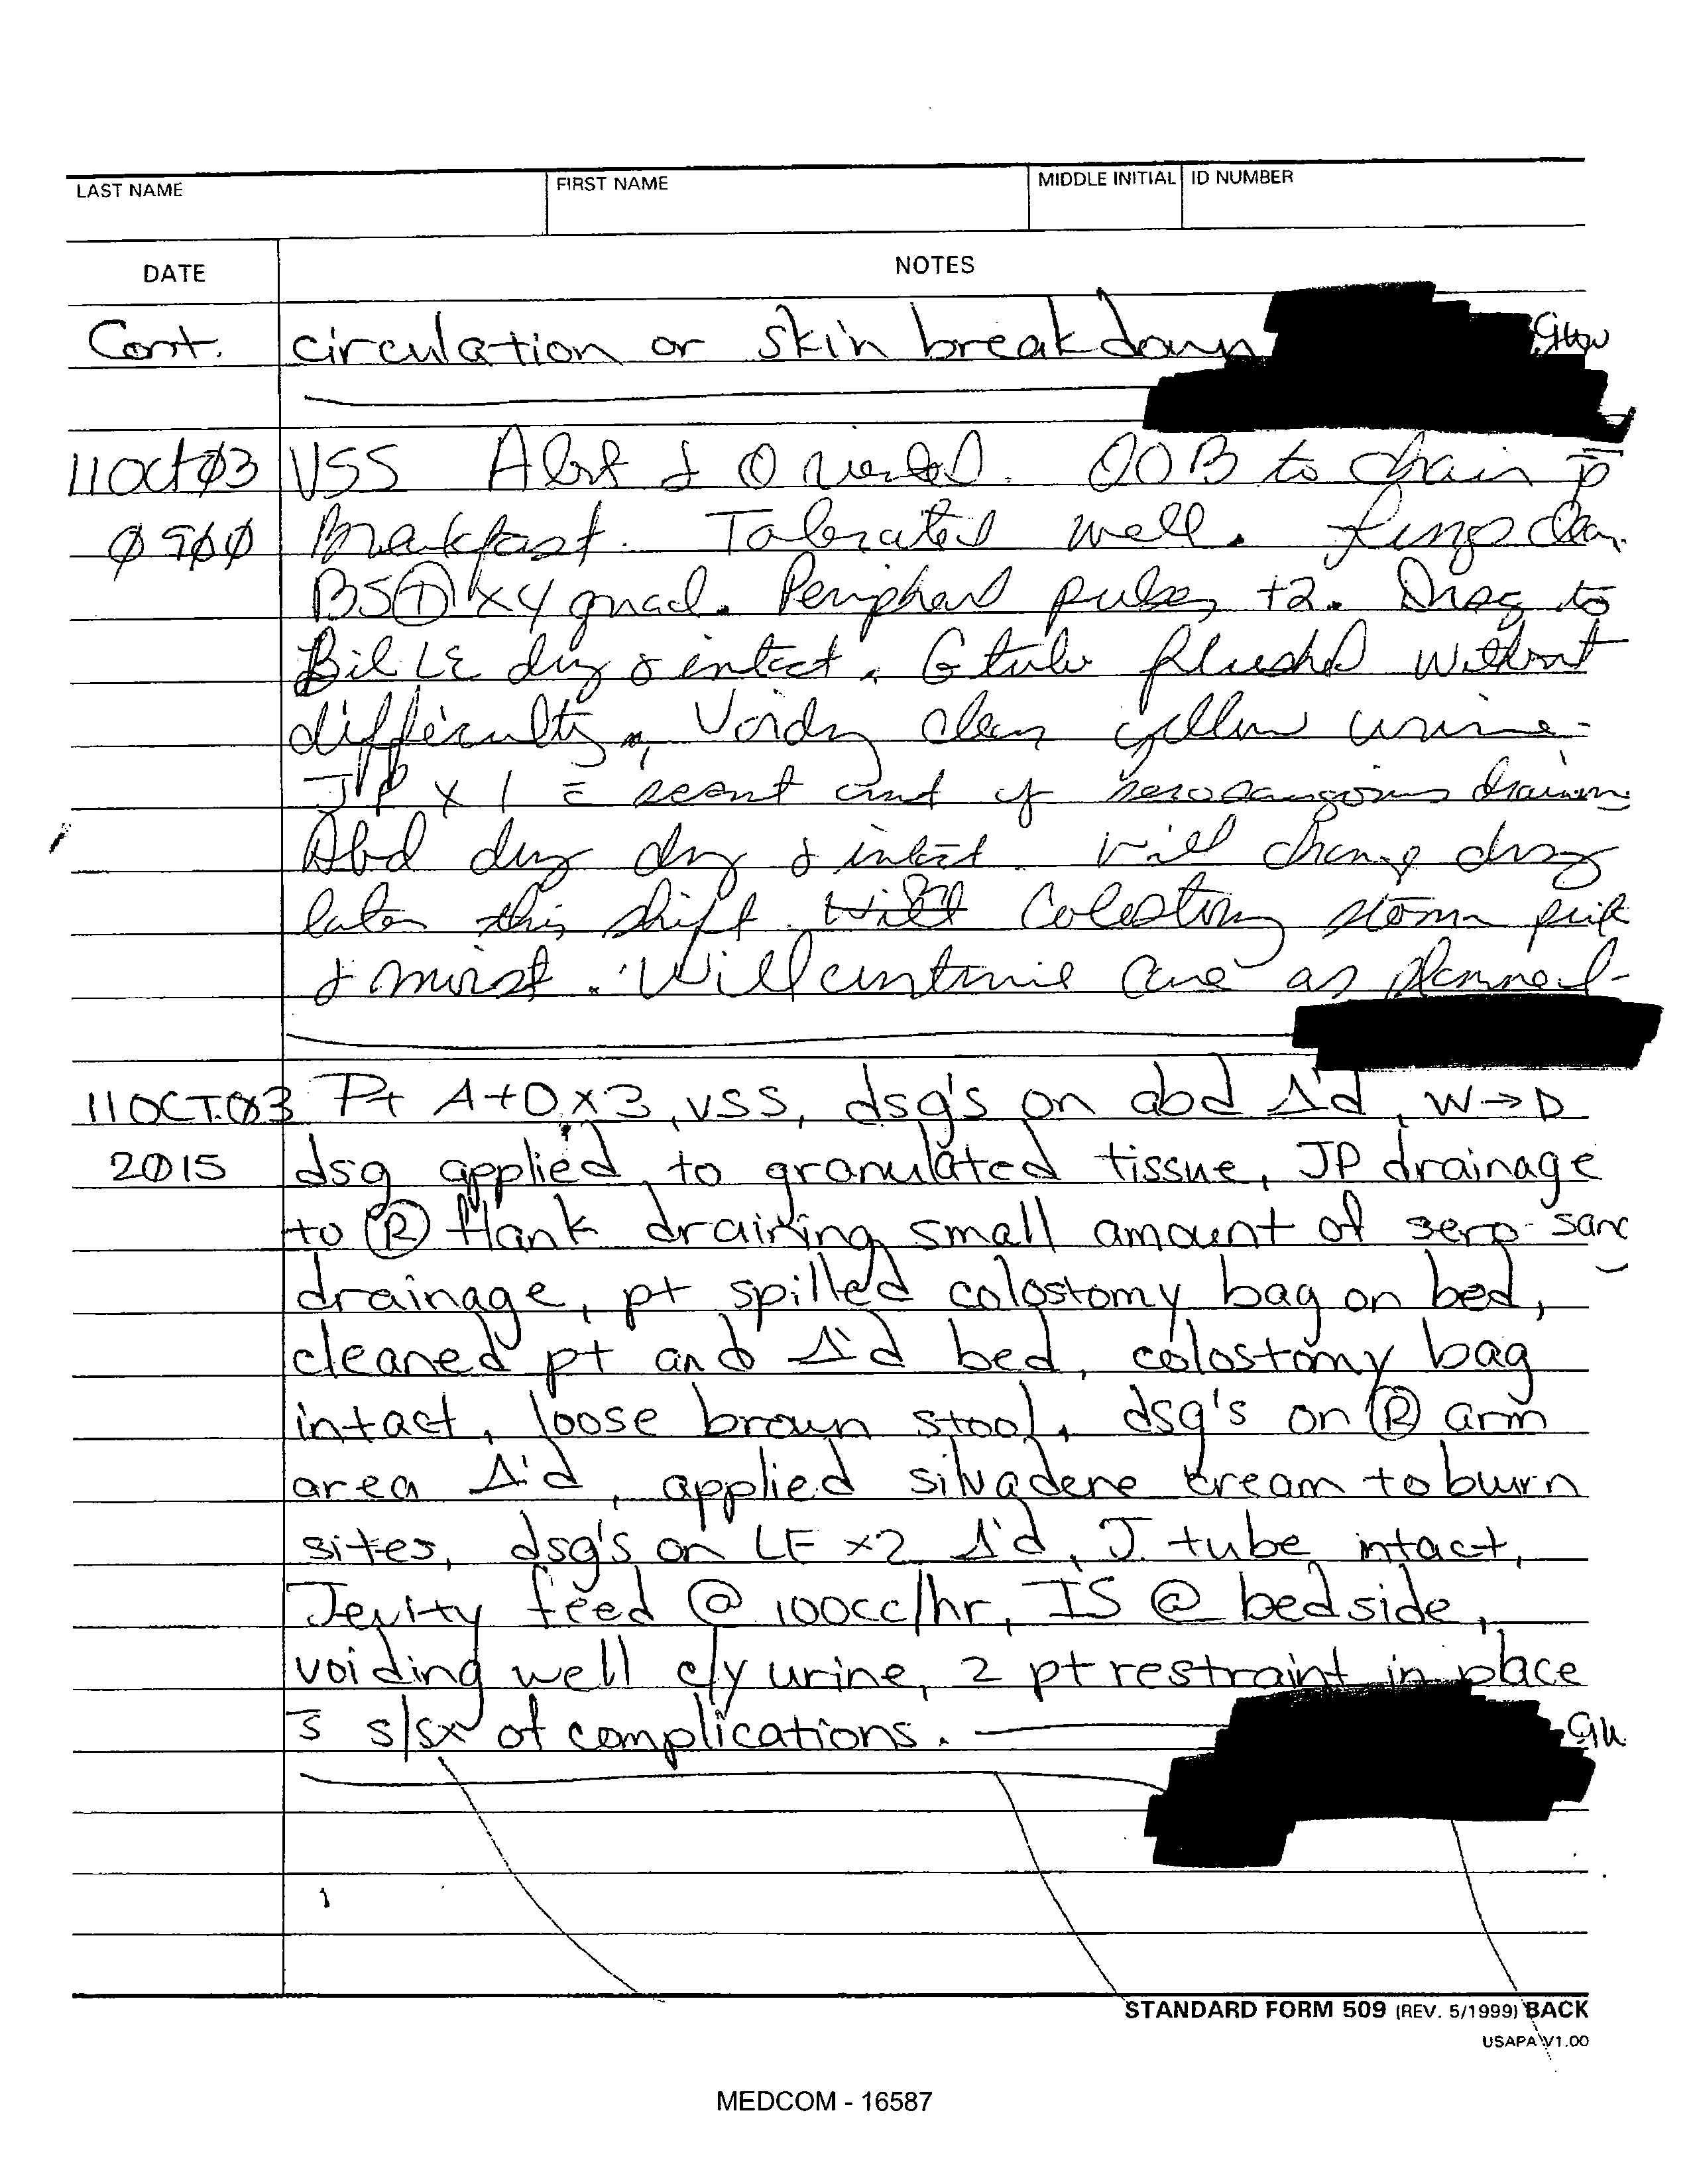 LAST NAME FIRST NAME MIDDLE INITIAL ID NUMBER
DATE NOTES
Cont. circulation or skin breakdown
11Oct03 VSS Alert & Oriented. OOB to chair p̄
0900 Breakfast. Tolerated well. Lungs clear.
BS⊕ x4 quad. Peripheral pulses +2. Drsg to
Bil LE dry & intact. G tube flushed without
difficulty. Voiding clear yellow urine-
JP x 1 c̄ scant amt of serosangious drainage
Abd drsg dry & intact. Will change drsg
later this shift. Will Colostomy stoma pink
& moist. Will continue care as planned-
11OCT.03 Pt A+O x3, VSS, dsg's on abd Δ'd, W→D
2015 dsg applied to granulated tissue, JP drainage
to Ⓡ flank draining small amount of sero-sang
drainage, pt spilled colostomy bag on bed,
cleaned pt and Δ'd bed, colostomy bag
intact, loose brown stool, dsg's on Ⓡ arm
area Δ'd, applied silvadene cream to burn
sites, dsg's on LE x2 Δ'd, J. tube intact,
Jevity feed @ 100cc/hr, IS @ bedside,
voiding well c/y urine, 2 pt restraint in place
s̄ s/sx of complications.
STANDARD FORM 509 (REV. 5/1999) BACK
USAPA V1.00
MEDCOM - 16587